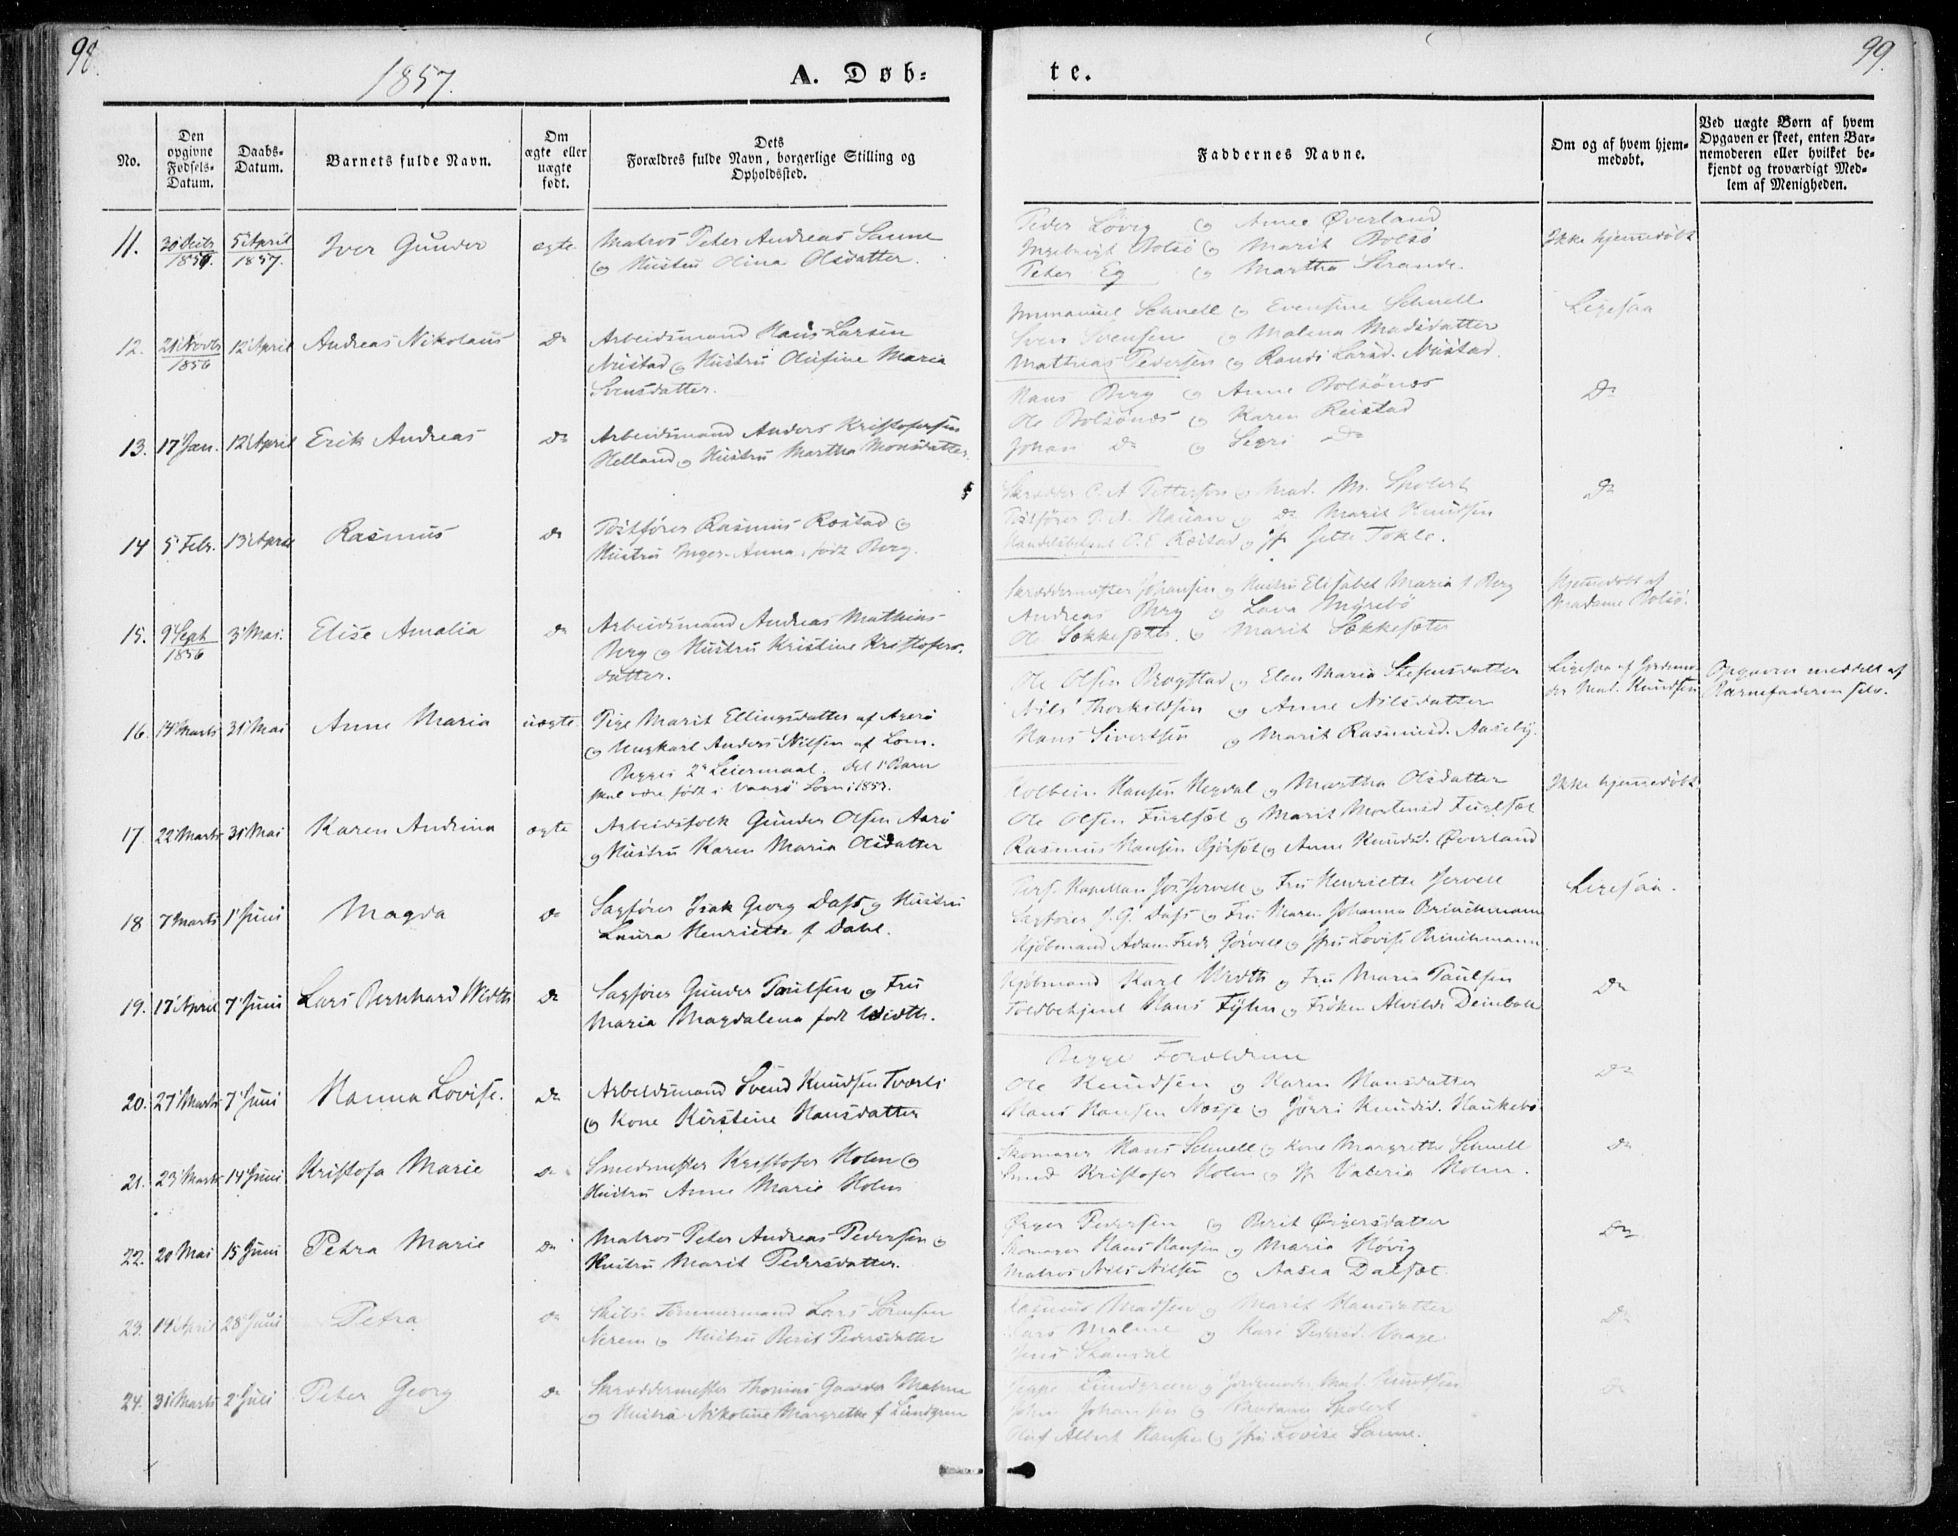 98.
1857.
A. Døb-
te.
99.
No.
Den opgivne Fødsels-Datum.
Daabs-Datum.
Barnets fulde Navn.
Om ægte eller uægte født.
Dets Forældres fulde Navn, borgerlige Stilling og Opholdssted.
Faddernes Navne.
Om og af hvem hjem-medøbt.
Ved uægte Børn af hvem Opgaven er skeet, enten Bar-nemoderen eller hvilket be-kjendt og troværdigt Med-lem af Menigheden.
11. 5 April 1857. Iver Gunder ægte
Matros Peter Andreas Sanne
og Hustru Olina Olsdatter.
Peder Løvig og Anne Øverland
Ingebrigt Bolsø og Marit Bolsø
Peter Eg og Martha Strande.
Ikke hjemmedøbt
12. 1856 12 April Andreas Nikolaus Do
Arbeidsmand Hans Larsen
Nustad og Hustru Olufine Maria
Svensdatter.
Immanuel Schnell og Evensine Schnell
Sven Svensen og Malena Madsdatter
Mathias Pedersen og Randi Larsd. Nustad.
Ligesaa
13. 17 Jan. 12 April Erik Andreas Do
Arbeidsmand Anders Kristofersen
Helland og Hustru Martha Monsdatter.
Hans Berg og Anne Bolsønes
Ole Bolsønes og Karen Reistad
Johan Do og Segri Do
Do
14 5 Febr. 13 April Rasmus Do
Postfører Rasmus Røstad og
Hustru Inger Anna, født Berg.
Skrædder C. A. Pettersen og Mad. M. Spolert
Postfører P. A. Hauan og Do Marit Knudsen
Røstad og Jfr Gitte Tokle.
Do
15. 9 Sept 1856 3 Mai. Elise Amalia Do
Arbeidsmand Andreas Mathias
Berg og Hustru Kristine Kristofers-
datter.
Skræddermester Johansen og Hustru Elisabet Maria f. Berg
Andreas Berg og Lava Myrebø
Ole Sækkesæter og Marit Sækkesæter
Hjemmedøbt af
Madame Bolsø.
16. 14 Marts 31 Mai Anne Maria uægte
Pige Marit Ellingsdatter af Agerø
og Ungkarl Anders Nilsen af Lom.
Begges 2det Leiermaal. det 1ste Barn
skal være født i Vaagø Lom i 1853.
Ole Olsen Brogstad og Elen Maria Stefensdatter
Nils Thorkildsen og Anne Nilsdatter
Hans Sivertsen og Marit Rasmusd. Aareby.
Ligesaa af Jordemo-
der Mad. Knudsen
Opgaven meddelt af
Barnefaderen selv.
17. 22 Marts 31 Mai Karen Andrina ægte
Arbeidsfolk Gunder Olsen Aarø
og Hustru Karen Maria Olsdatter
Kolbein Hansen Hegdal og Martha Olsdatter
Ole Olsen Fuglset og Marit Mortensd Fuglset
Rasmus Hansen og Anne Knudsd. Øverland
Ikke hjemmedøbt.
18 7 Marts 1 Juni Magda Do
Sagfører Isak Georg Dass og Hustru
Laura Henriette f. Dahl.
Pers. Kapellan Jervell og Fru Henriette Jervell
Sagfører J. G. Dass og Fru Maren Johanna Brinchmann
Kjøbmand Adam Fredr Jervell og Jfru Lovise Brinchmann
Ligesaa.
19. 17 April 7 Juni Lars Bernhard Width Do
Sagfører Gunder Paulsen og Fru
Maria Magdalena født Width.
Kjøbmand Karl Width og Fru Maria Paulsen
Toldbetjent Hans og Frøken Alvilde Deinboll
Do
20. 27 Marts 7 Juni Hanna Lovise. Do
Arbeidsmand Svend Knudsen Tværli
og Kone Kirstine Hansdatter
Begge Forældrene
Ole Knudsen og Karen Hansdatter
Hans Hansen Næsje og Jørri Knudsd. Haukebø
Do
21. 23 Marts 14 Juni Kristofa Marie Do
Smedmester Kristofer Holm og
Hustru Anne Marie Holm
Skomager Hans Schnell og Kone Margrethe Schnell
Smed Kristofer Holm og Jfr Valeria Holm.
Do
22. 20 Mai 15 Juni Petra Marie Do
Matros Peter Andreas Pedersen og
Hustru Marit Pedersdatter.
Ørger Pedersen og Berit Ørgersdatter
Skomager Hans Hansen og Maria Høvig
Matros Nils Nilsen og Aasea Dalset
Do
23. 14 April 28 Juni Petra Do
Skibs-Tømmermand Lars Sørensen
Nerem og Hustru Berit Pedersdatter
Rasmus Madsen og Marit Hansdatter
Lars Malme og Kari Pedersd. Vaage
Jens
Do
24. 31 Marts 2 Juli Peter Georg Do
Skræddermester Thomas Gaarder Malme
og Hustru Nikoline Margrethe f. Lundgren
Jeppe Lundgreen og Jordemoder Mad. Knudsen
Johan Johansen og Madame Spolert
Oluf Albert Hansen og Jfru Lovise Sanne.
Do